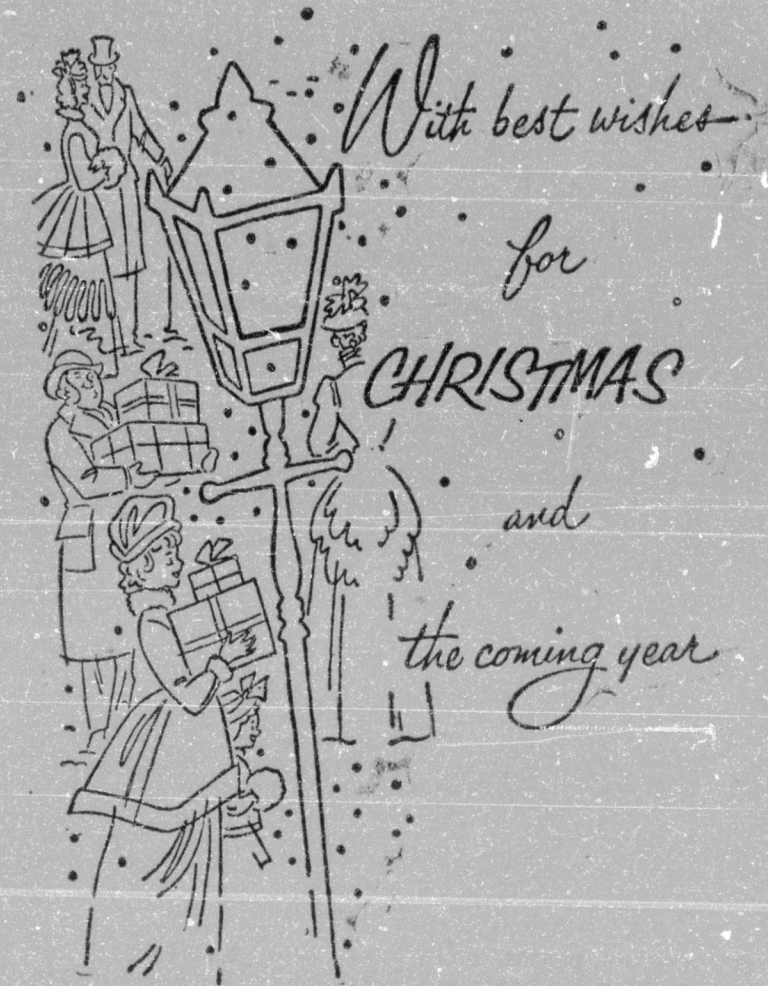 With best wishes
for
CHRISTMAS
and
the coming year